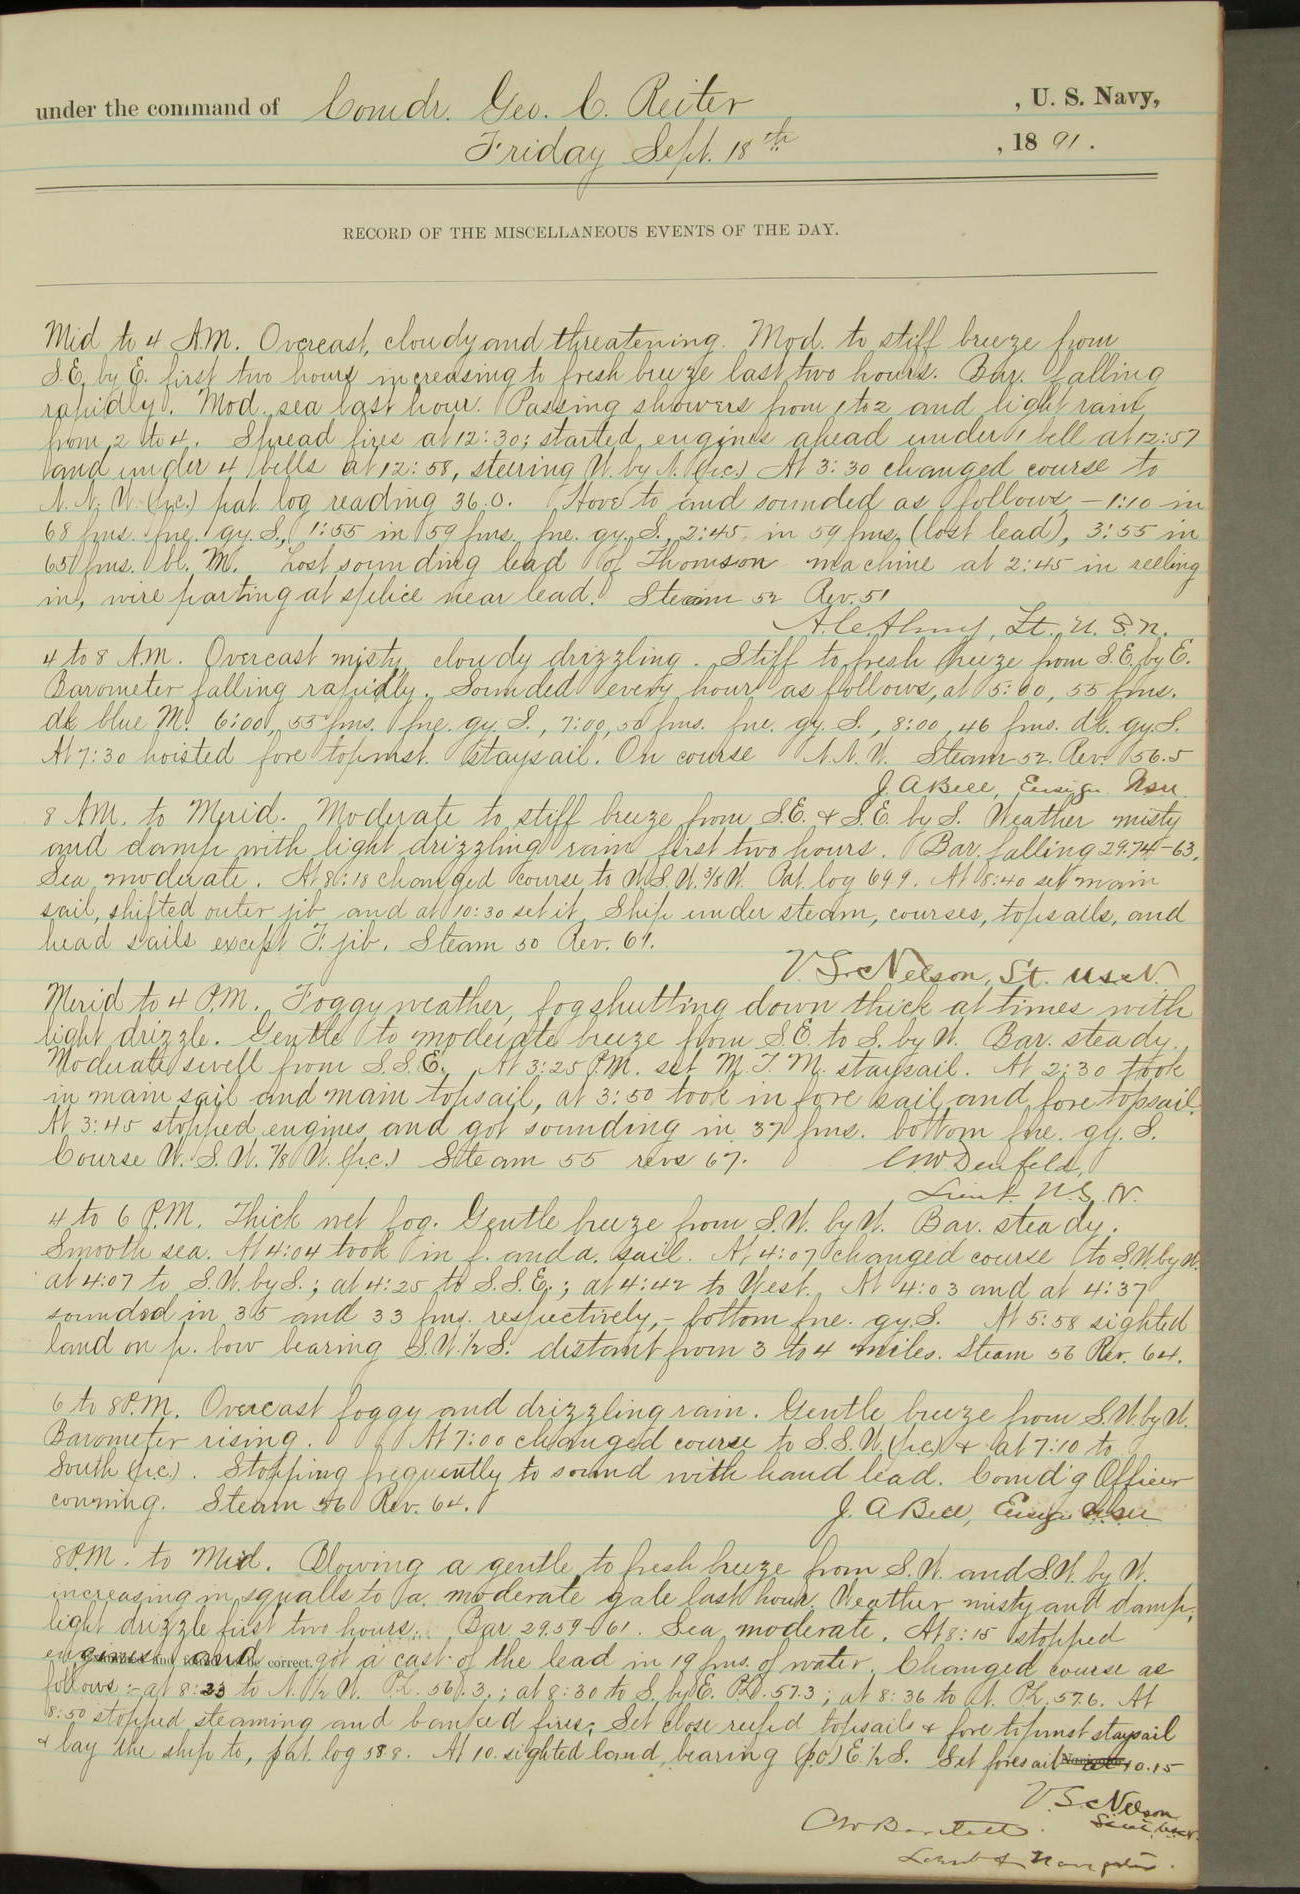 under the command of Comdr. Geo. C. Reiter , U. S. Navy,
Friday Sept. 18th , 1891.
RECORD OF THE MISCELLANEOUS EVENTS OF THE DAY.
Mid to 4 A.M. Overcast, cloudy and threatening. Mod. to stiff breeze from
S.E. by E. first two hours increasing to fresh breeze last two hours. Bar. falling
rapidly. Mod. sea last hour. Passing showers from 1 to 2 and light rain
from 2 to 4. Spread fires at 12:30; started engines ahead under 1 bell at 12:57
and under 4 bells at 12:58, steering W. by N. (p.c.) At 3:30 changed course to
N.N.W. (p.c.) pat log reading 36.0. Hove to and sounded as follows – 1:10 in
68 fms. fne. gy. S., 1:55 in 59 fms. fne. gy. S., 2:45 in 59 fms. (lost lead), 3:55 in
65 fms. bl. M. Lost sounding lead of Thomson machine at 2:45 in reeling
in, wire parting at splice near lead. Steam 52 Rev. 51
Lt. U.S.N.
4 to 8 A.M. Overcast misty cloudy drizzling. Stiff to fresh breeze from S.E. by E.
Barometer falling rapidly. Sounded every hour as follows, at 5:00, 55 fms.
dk blue M. 6:00, 55 fms. fne. gy. S., 7:00, 50 fms. fne. gy. S., 8:00, 46 fms. dk. gy. S.
At 7:30 hoisted fore topmst. staysail. On course N.N.W. Steam 52. Rev. 56.5
J. A Bell, Ensign USN
8 A.M. to Merid. Moderate to stiff breeze from S.E. & S.E. by S. Weather misty
and damp with light drizzling rain first two hours. Bar. falling 29.74–63.
Sea moderate. At 8:18 changed course to W.S.W. 3/8 W. Pat. log 69.9. At 8:40 set main
sail, shifted outer jib and at 10:30 set it. Ship under steam, courses, topsails, and
head sails except F. jib. Steam 50 Rev. 61.
V. S. Nelson, Lt. U.S.N.
Merid to 4 P.M. Foggy weather, fog shutting down thick at times with
light drizzle. Gentle to moderate breeze from S.E. to S. by W. Bar. steady.
Moderate swell from S.S.E. At 3:25 P.M. set M.T.M. staysail. At 2:30 took
in main sail and main topsail, at 3:50 took in fore sail and fore topsail.
At 3:45 stopped engines and got sounding in 37 fms. bottom fne. gy. S.
Course W.S.W. 7/8 W. (p.c.) Steam 55 revs 67. Denfeld,
Lieut. U.S.N.
4 to 6 P.M. Thick wet fog. Gentle breeze from S.W. by W. Bar. steady.
Smooth sea. At 4:04 took in f. and a. sail. At 4:07 changed course to S.W. by W.
at 4:07 to S.W. by S.; at 4:25 to S.S.E.; at 4:42 to West. At 4:03 and at 4:37
sounded in 35 and 33 fms. respectively, – bottom fne. gy. S. At 5:58 sighted
land on p. bow bearing S.W. 1/2 S. distant from 3 to 4 miles. Steam 56 Rev. 64.
6 to 8 P.M. Overcast foggy and drizzling rain. Gentle breeze from S.W. by W.
Barometer rising. At 7:00 changed course to S.S.W. (p.c.) & at 7:10 to
South (p.c.). Stopping frequently to sound with hand lead. Comd'g Officer
conning. Steam 56 Rev. 64.
J. A Bell, Ensign USN
8 P.M. to Mid. Blowing a gentle to fresh breeze from S.W. and S.W. by W.
increasing in squalls to a moderate gale last hour. Weather misty and damp,
light drizzle first two hours. Bar 29.59–61. Sea moderate. At 8:15 stopped
engines and got a cast of the lead in 19 fms. of water. Changed course as
follows:– at 8:23 to N. 1/2 W. P.L. 56.3.; at 8:30 to S. by E. P.L. 57.3; at 8:36 to P.L. 57.6. At
8:50 stopped steaming and banked fires. Set close reefed topsails & fore topmst staysail
& lay the ship to, pat. log 58.8. At 10. sighted land, bearing (p.c) E. 1/2 S. Set foresail at 10.15
V. S. Nelson
Lieut. U.S.N.
Lieut & Navigator.